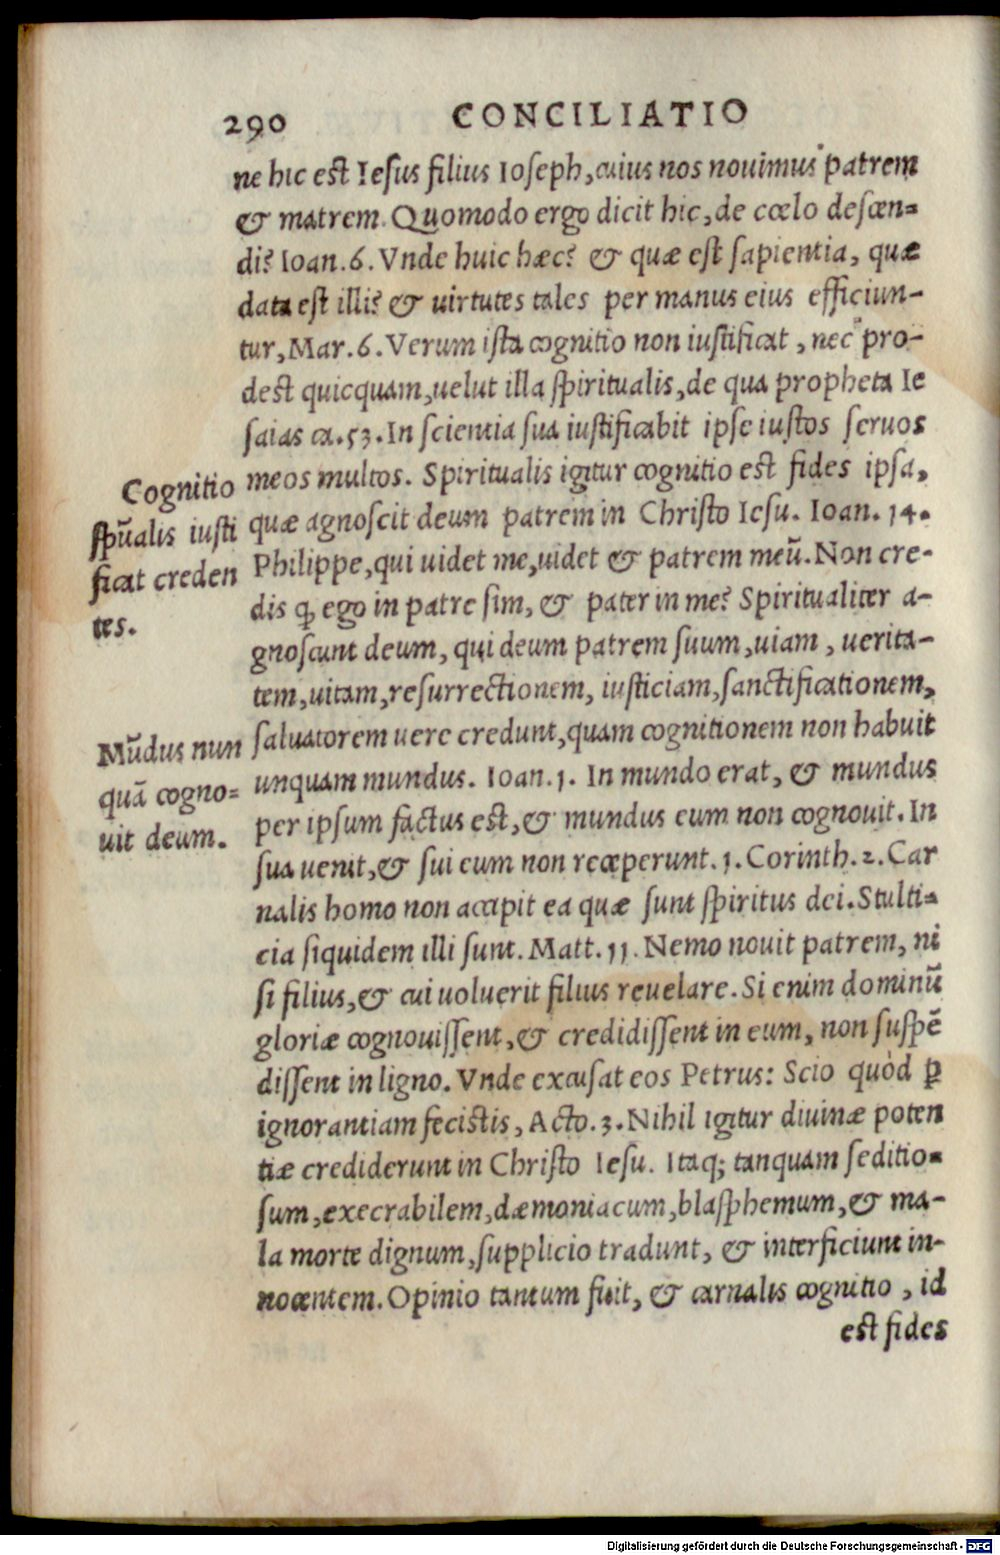 290 CONCILIATIO
ne hic est Iesus filius Ioseph, cuius nos nouimus patrem
& matrem. Quomodo ergo dicit hic, de cœlo descen=
di? Ioan. 6. Vnde huic hæc? & quæ est sapientia, quæ
data est illi? & uirtutes tales per manus eius efficiun-
tur, Mar. 6. Verum ista cognitio non iustificat, nec pro-
dest quicquam, uelut illa spiritualis, de qua propheta Ie
saias ca. 53. In scientia sua iustificabit ipse iustos seruos
meos multos. Spiritualis igitur cognitio est fides ipsa,
quæ agnoscit deum patrem in Christo Iesu. Ioan. 14.
Philippe, qui uidet me, uidet & patrem meū. Non cre-
dis ꝙ ego in patre sim, & pater in me? Spiritualiter a-
gnoscunt deum, qui deum patrem suum, uiam, uerita-
tem, uitam, resurrectionem, iusticiam, sanctificationem,
saluatorem uere credunt, quam cognitionem non habuit
unquam mundus. Ioan. 1. In mundo erat, & mundus
per ipsum factus est, & mundus eum non cognouit. In
sua uenit, & sui eum non receperunt. 1. Corinth. 2. Car
nalis homo non accipit ea quæ sunt spiritus dei. Stulti=
cia siquidem illi sunt. Matt. 11. Nemo nouit patrem, ni
si filius, & cui uoluerit filius reuelare. Si enim dominū
gloriæ cognouissent, & credidissent in eum, non suspē
dissent in ligno. Vnde excusat eos Petrus: Scio quòd ꝑ
ignorantiam fecistis, Acto. 3. Nihil igitur diuinæ poten
tiæ crediderunt in Christo Iesu. Itaq; tanquam seditio=
sum, execrabilem, dæmoniacum, blasphemum, & ma-
la morte dignum, supplicio tradunt, & interficiunt in-
nocentem. Opinio tantum fuit, & carnalis cognitio, id
est fides
Cognitio
spūalis iusti
ficat creden
tes.
Mūdus nun
quā cogno=
uit deum.
Digitalisierung gefördert durch die Deutsche Forschungsgemeinschaft - DFG